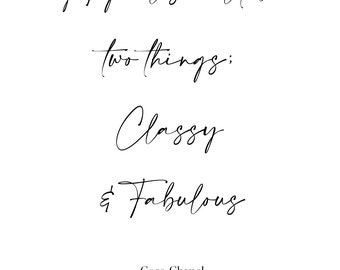 two things:
Classy
& Fabulous
Coco Chanel